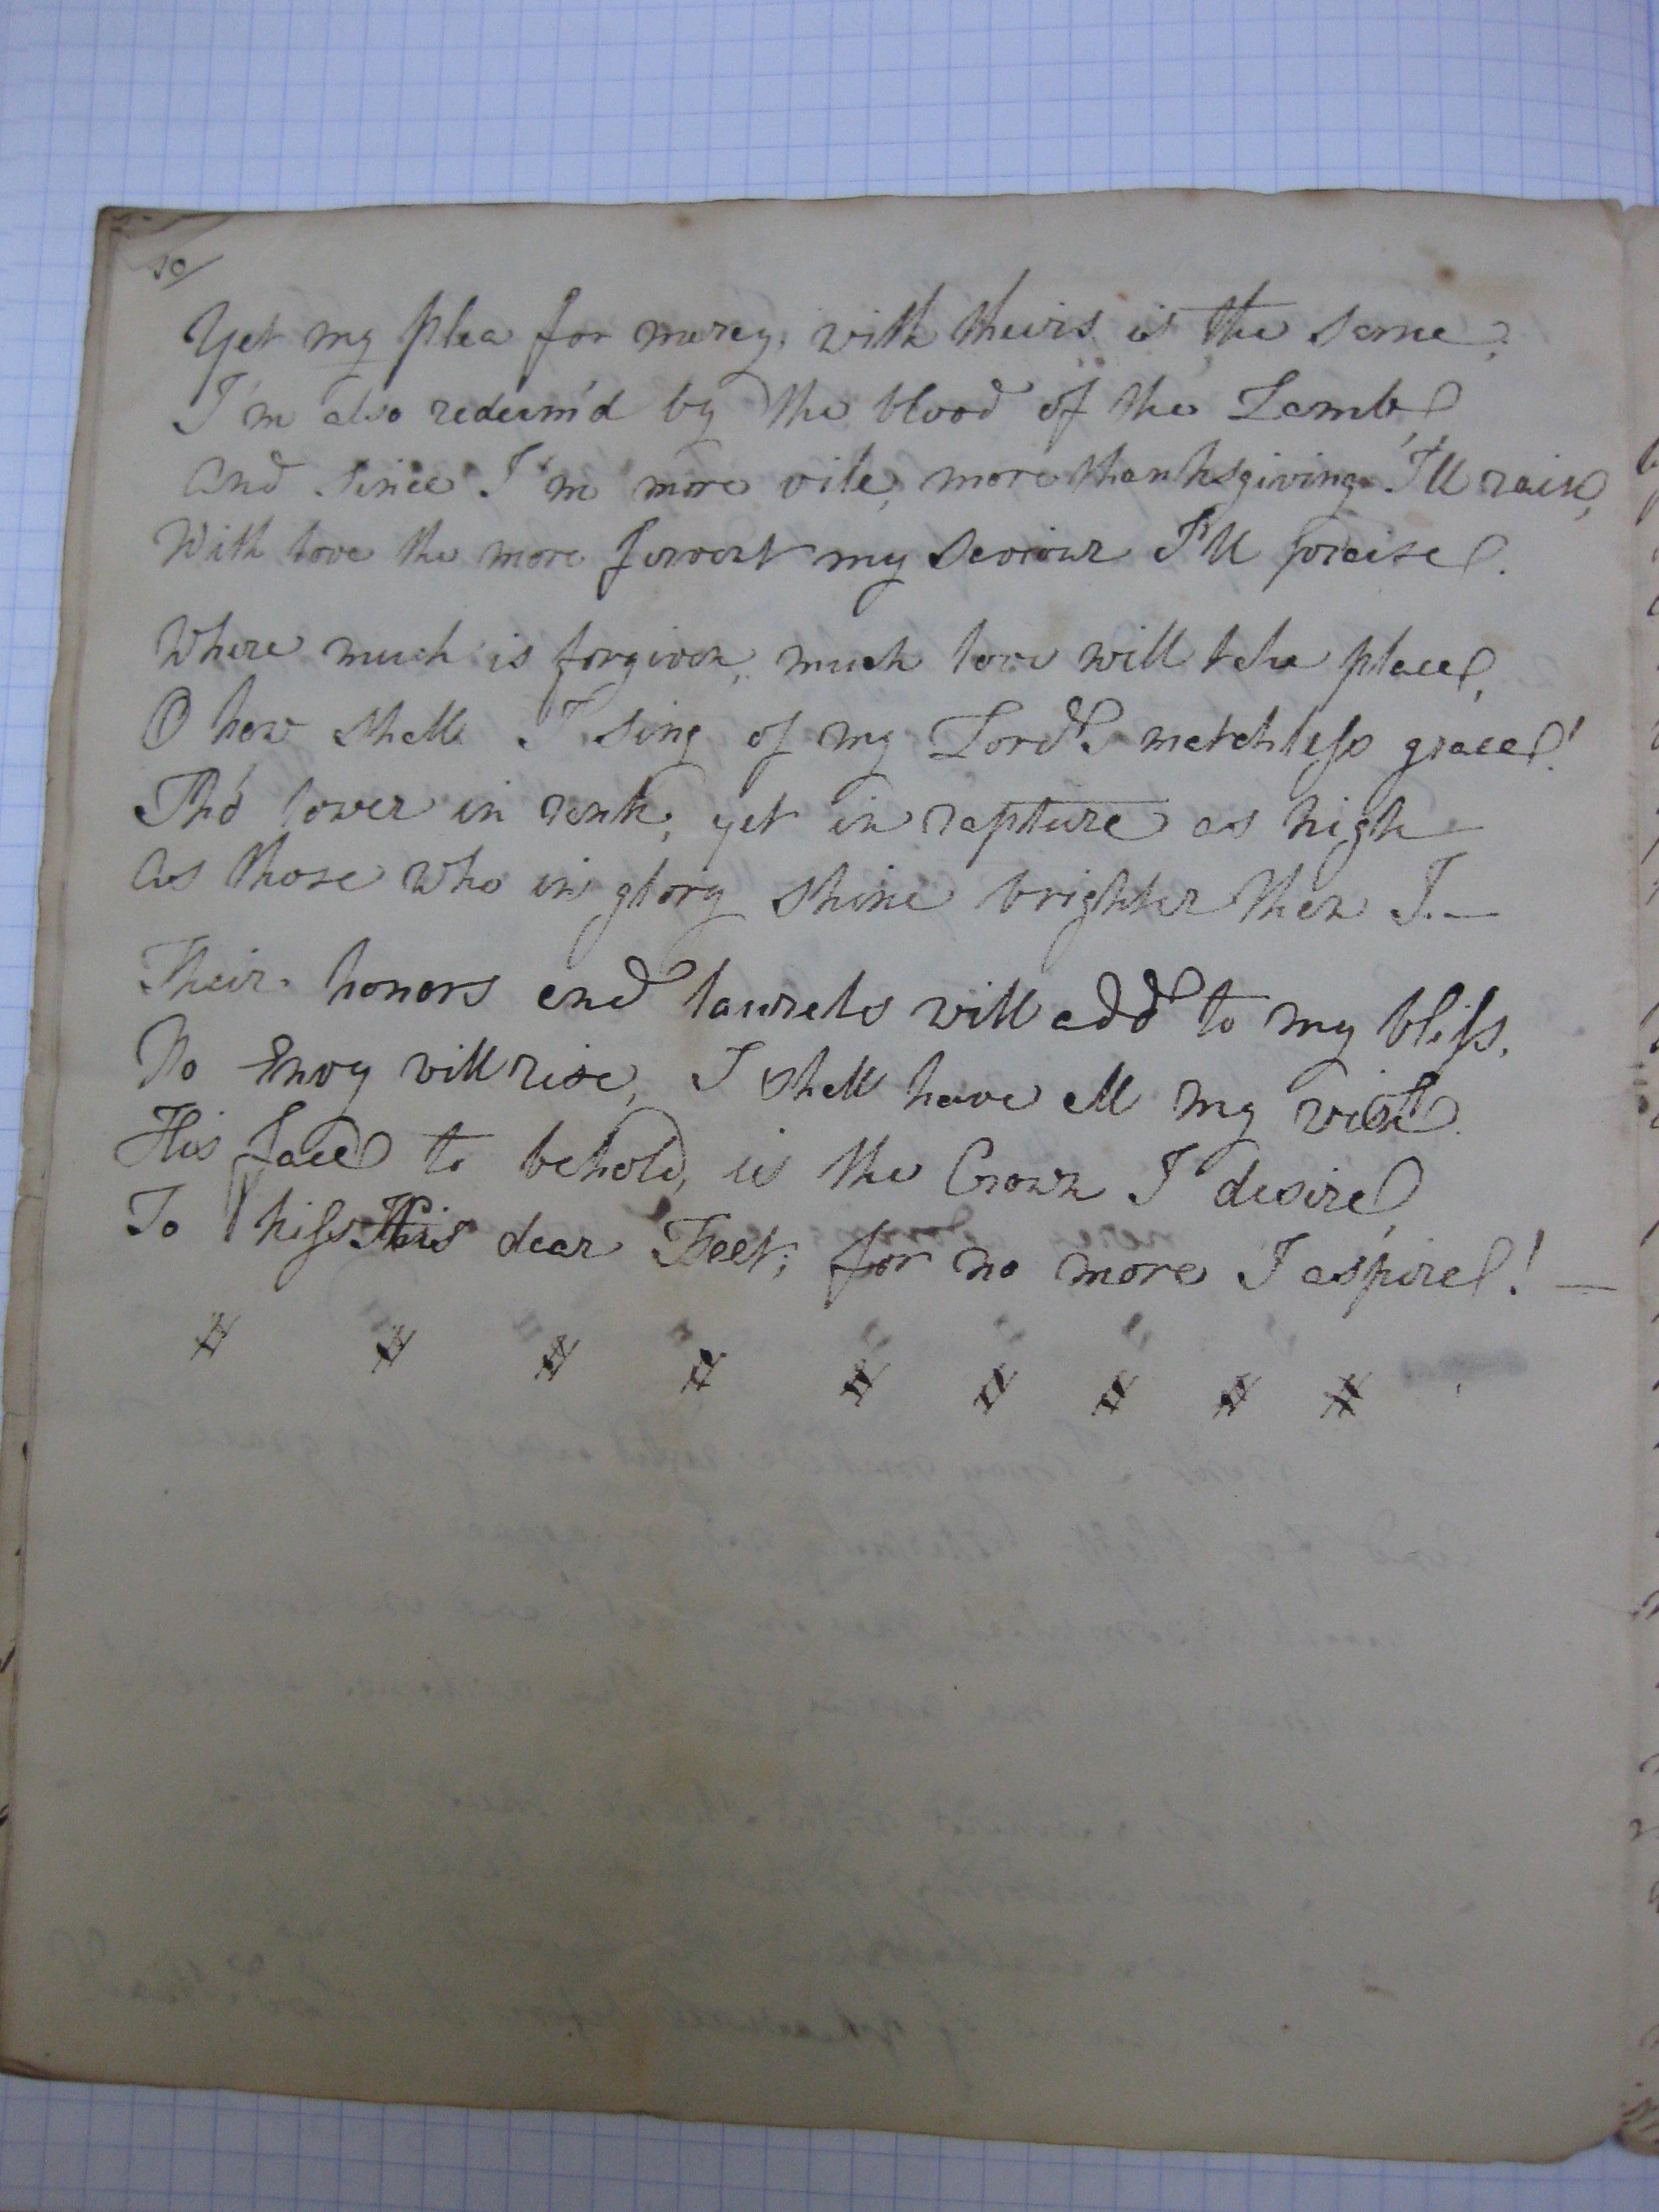 10/
Yet my plea for mercy, with theirs is the same,
I'm also redeem'd by the blood of the Lamb,
And since I'm more vile, more thanksgiving I'll raise,
With love the more fervent my Saviour I'll praise.
Where much is forgiven, much love will take place,
O how shall I sing of my Lord's matchless grace!
Tho' lower in rank, yet in rapture as high
As those who in glory shine brighter than I.—
Their honors and laurels will add to my bliss,
No Envy will rise, I shall have all my wish
His face to behold, is the Crown I desire,
To kiss His dear Feet; for no more I aspire! —
# # # # # # # # #